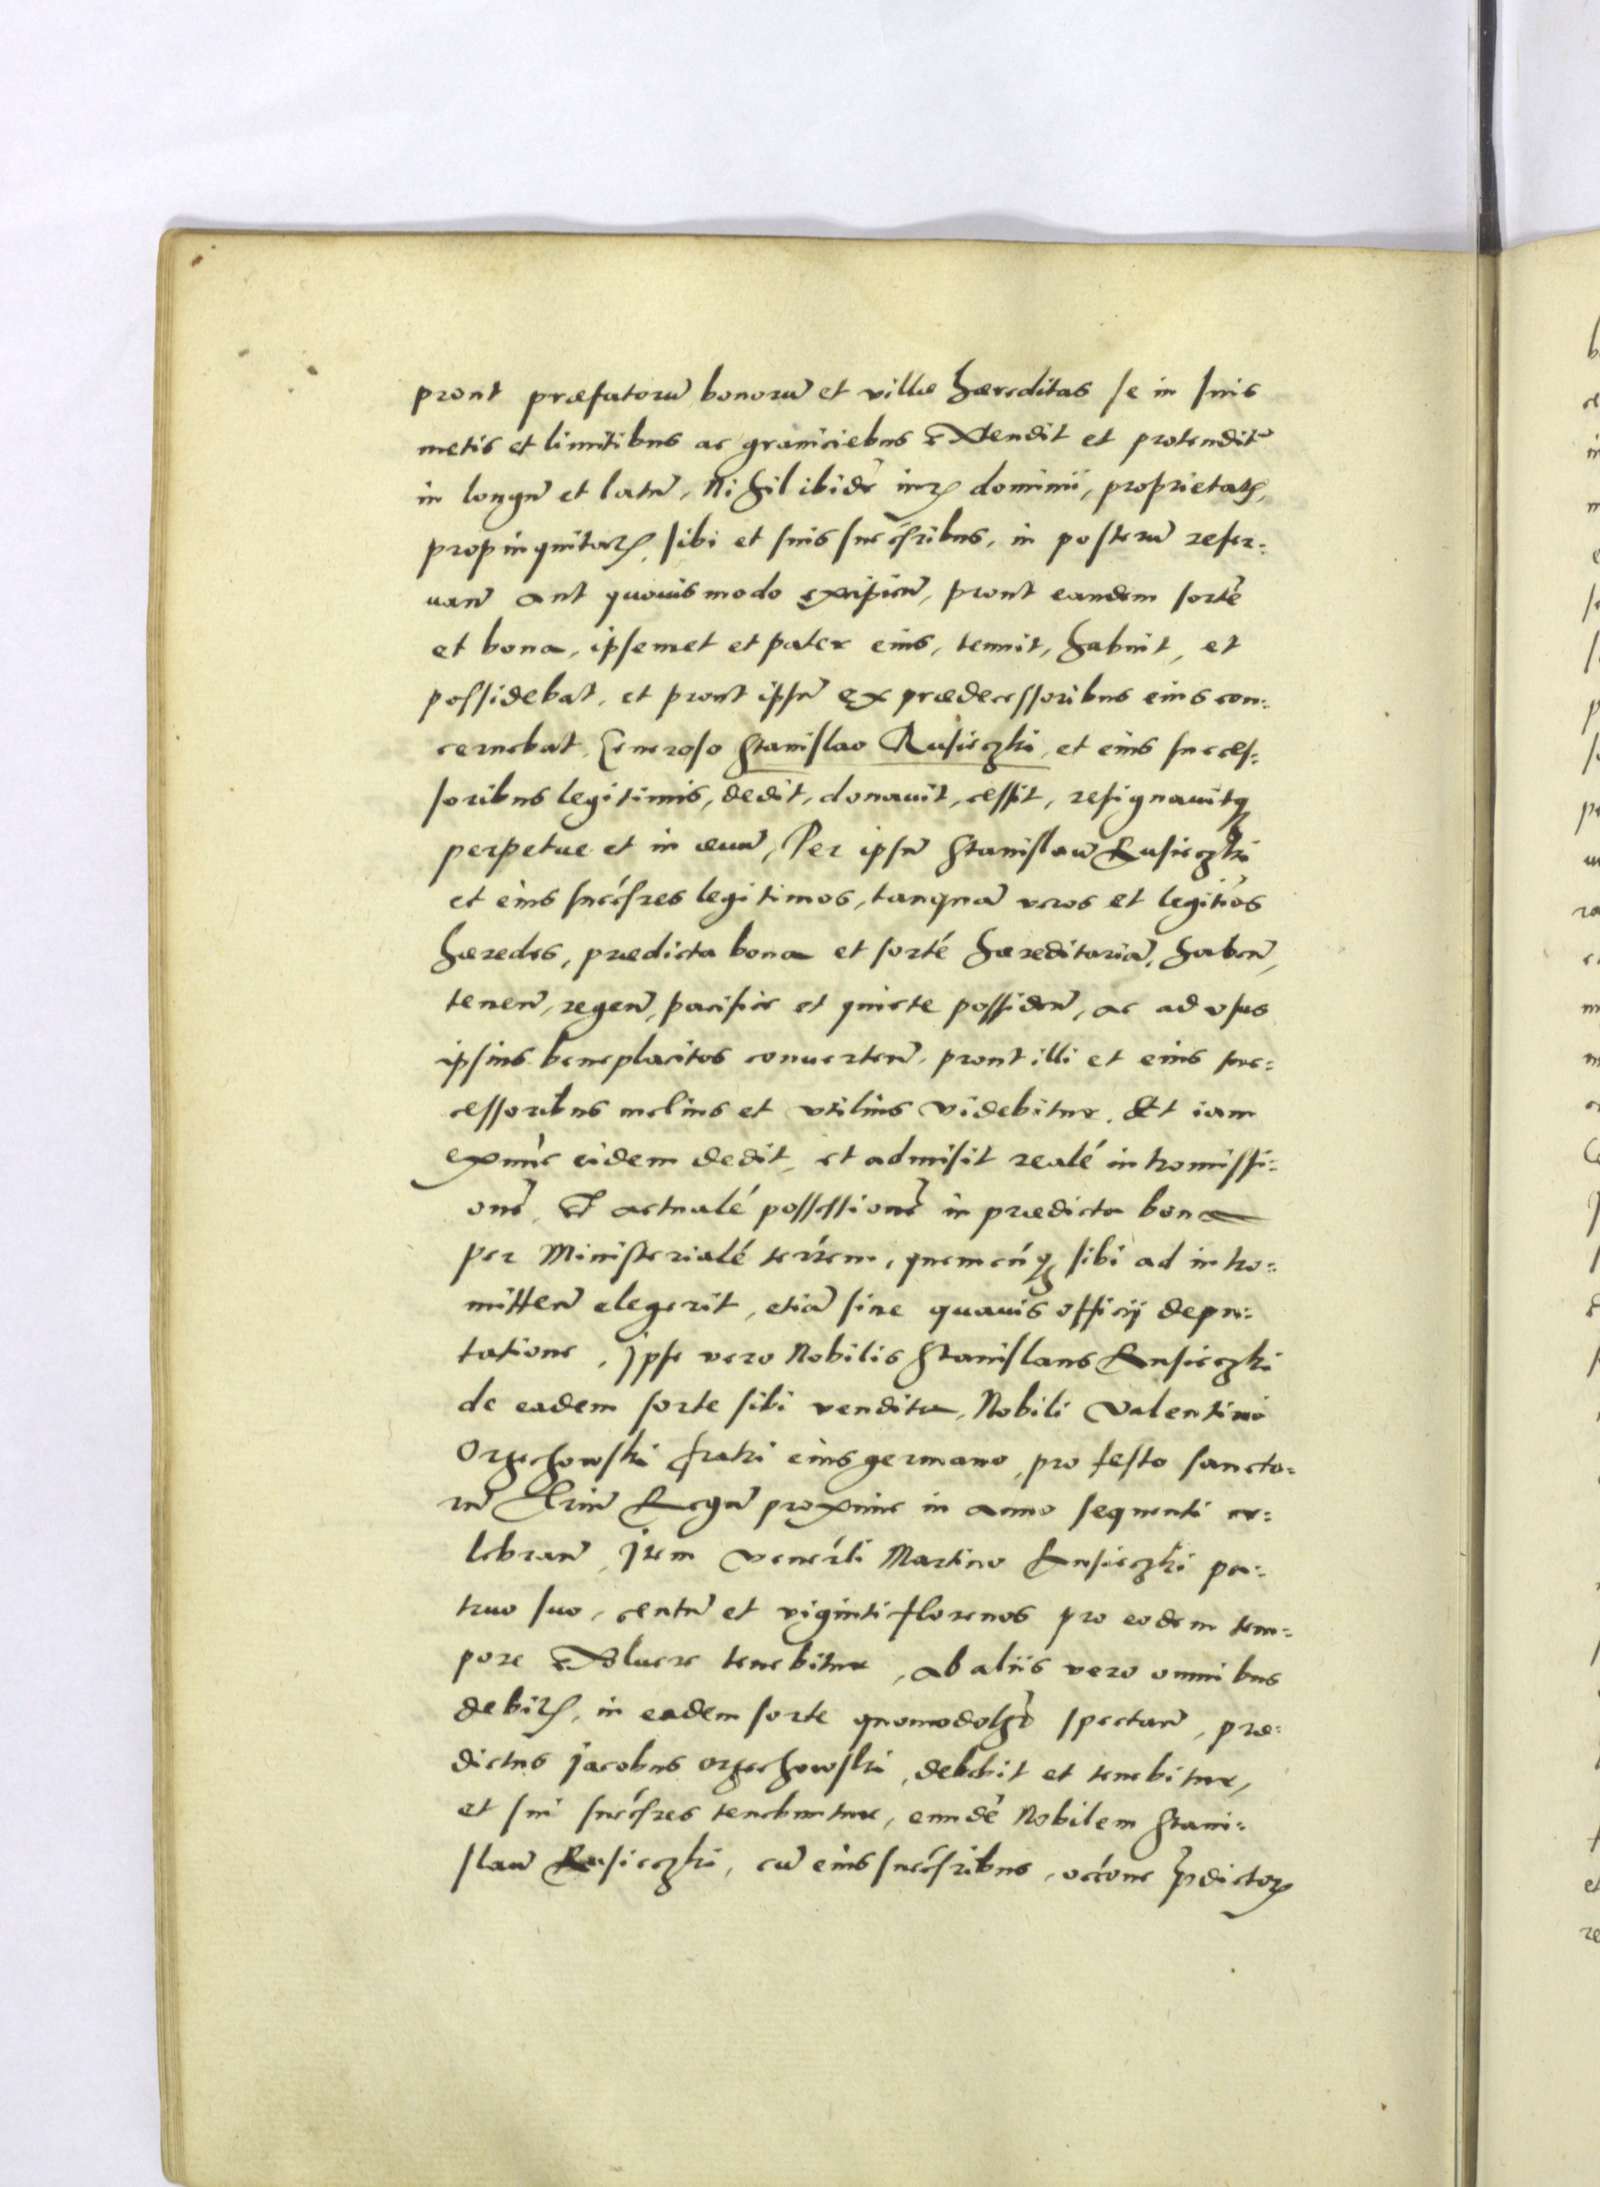 prout præfatorū bonorū et villæ hæreditas se in suis
metis et limitibus ac graniciebus extendit et protendit
in longū et latū, Nihil ibidē iuris dominii, proprietatis,
propinquitatis, sibi et suis succĕsribus, in posterū reser:
uan̄ aut quouismodo excipien̄, prout eandem sortē
et bona, ipsemet et pater eius, tenuit, habuit, et
possidebat, et prout ipsū ex prædecessoribus eius con:
cernebat, Generoso Stanislao Rusieczki, et eius succes:
soribus legitimis, dedit, donauit, cessit, resignauitq
perpetue et in æuū, Per ipsū Stanislaū Rusieczki
et eius succĕsres legitimos, tanquā veros et legitīos
hæredes, prædicta bona et sortē hæreditariā, haben̄,
tenen̄, regen̄, pacifice et quiete possiden̄, ac ad vsus
ipsius beneplacitos conuerten̄, prout illi et eius suc:
cessoribus melius et vtilius videbitur. Et iam
exnūc eidem dedit, et admisit realē intromissi:
onē, Et actualē possessionē in prædicta bona
per Ministerialē terrēm, quemcūq sibi ad intro:
mitten̄ elegerit, etiā sine quauis officij depu:
tatione, Ipse vero Nobilis Stanislaus Rusieczki
de eadem sorte sibi vendita, Nobili Valentino
Orzechowski fratri eius germano, pro festo sancto:
rū Triū Regū proxime in anno sequenti ce:
lebran̄, Item Venerli Martino Rusieczki pa:
truo suo, centū et viginti florenos pro eodem tem:
pore exoluere tenebitur, ab aliis vero omnibus
debitis, in eadem sorte quomodolibet spectan̄, præ:
dictus Jacobus Orzechowski, debebit et tenebitur,
et sui succĕsres tenebuntur, eundē Nobilem Stani:
slaū Rusieczki, cū eius succĕsribus, occ̄one p̄dictorꝫ